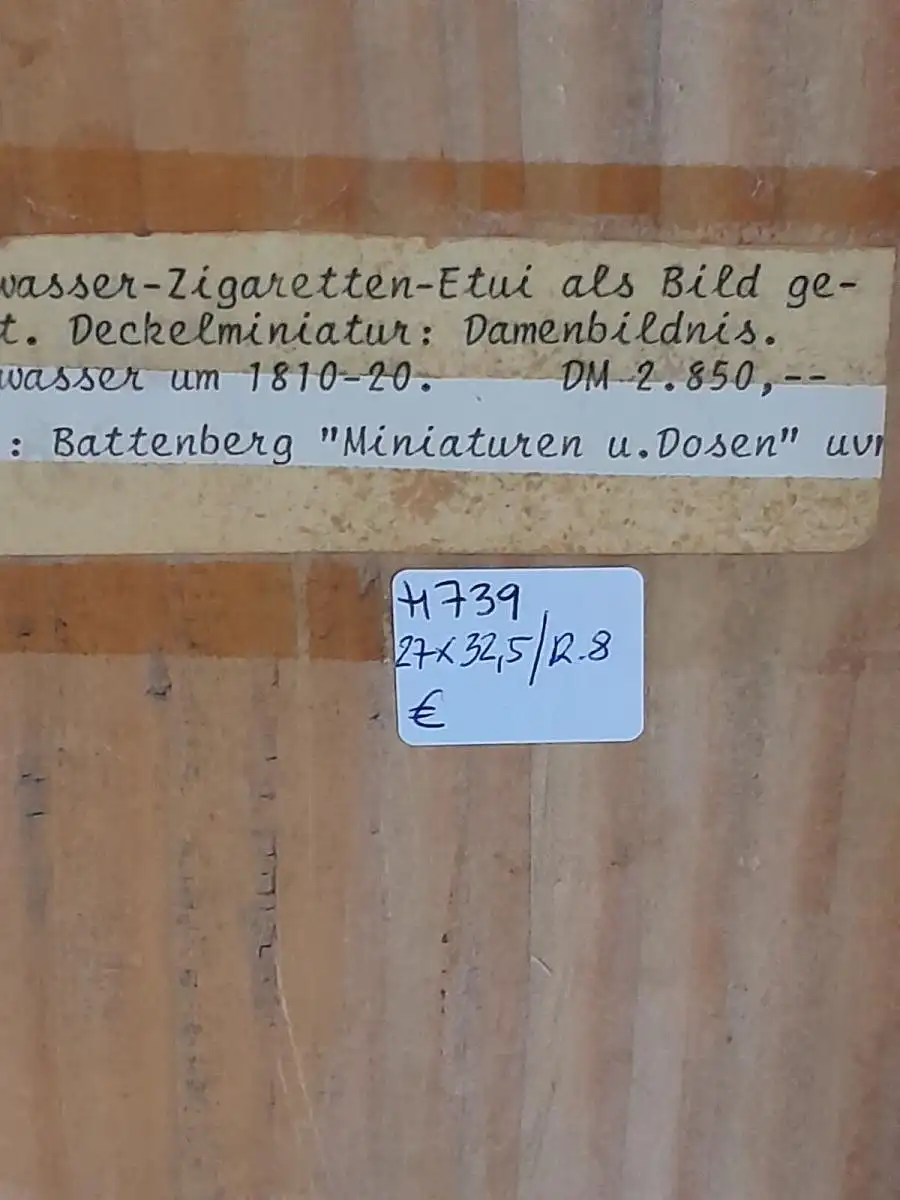 wasser-Zigaretten-Etui als Bild ge-
t. Deckelminiatur: Damenbildnis.
wasser um 1810-20. DM 2.850,--
: Battenberg "Miniaturen u.Dosen" uvm
H739
27x32,5/R.8
€